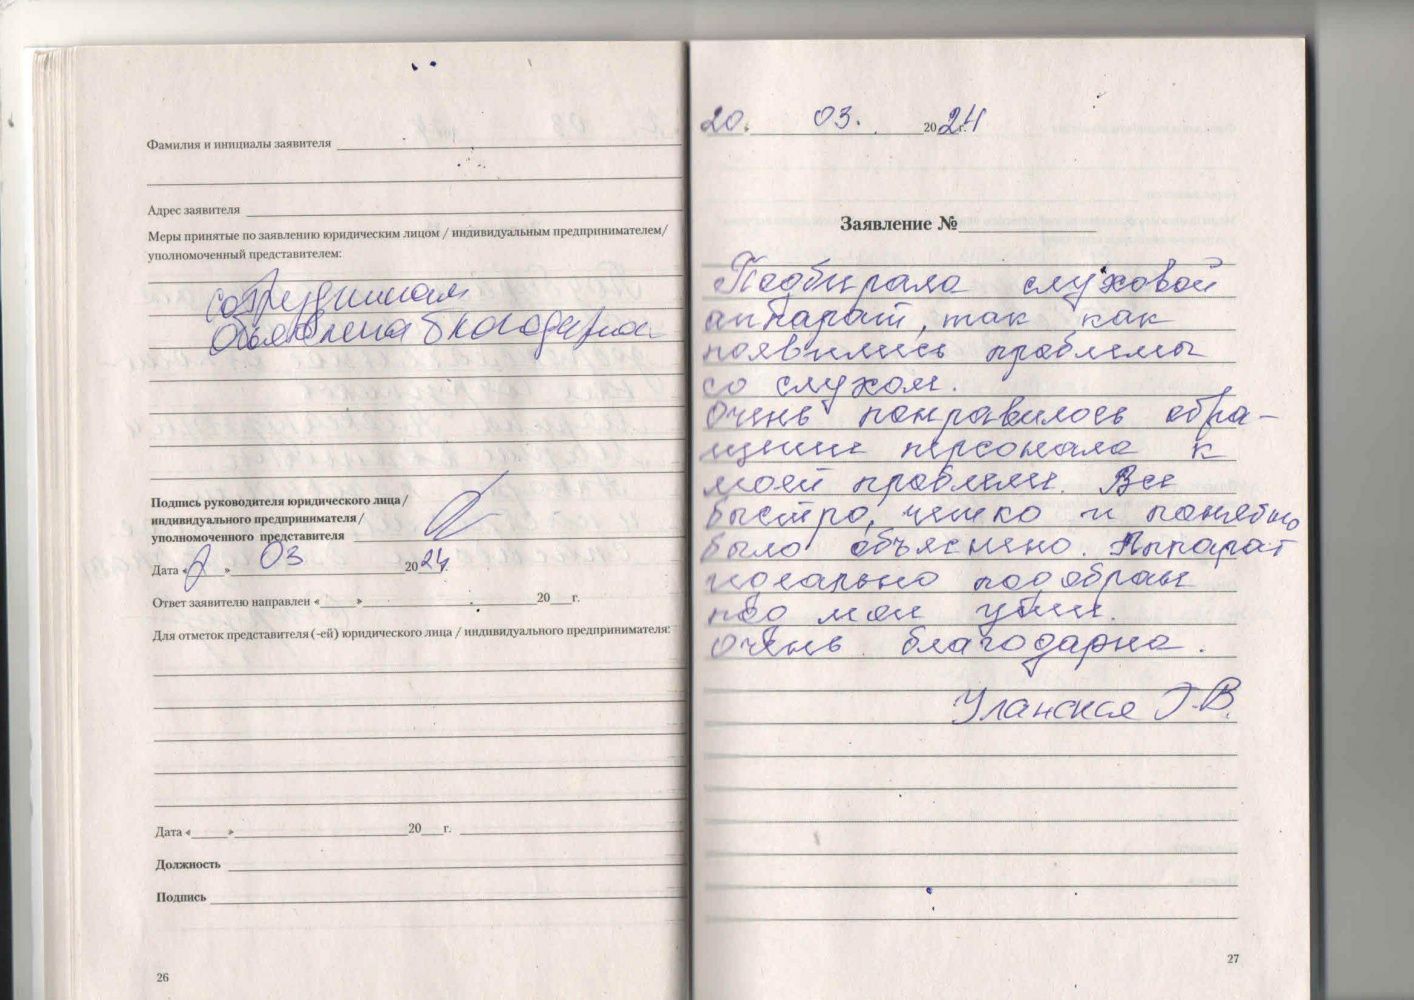 Фамилия и инициалы заявителя
Адрес заявителя
Меры принятые по заявлению юридическим лицом / индивидуальным предпринимателем/
уполномоченный представителем:
сотрудникам
объявлена благодарнос
Подпись руководителя юридического лица/
индивидуального предпринимателя/
уполномоченного представителя
Дата « » 03 2024
Ответ заявителю направлен « » 20 г.
Для отметок представителя (-ей) юридического лица / индивидуального предпринимателя:
Дата « » 20 г.
Должность
Подпись
26
20. 03. 2024 г.
Заявление №
Подбирала слуховой
аппарат, так как
появились проблемы
со слухом.
Очень понравилось обра-
щение персонала к
моей проблеме. Все
быстро, четко и понятно
было объяснено. Аппарат
идеально подобран
под мои ушки.
Очень благодарна.
Уланская Г.В.
27